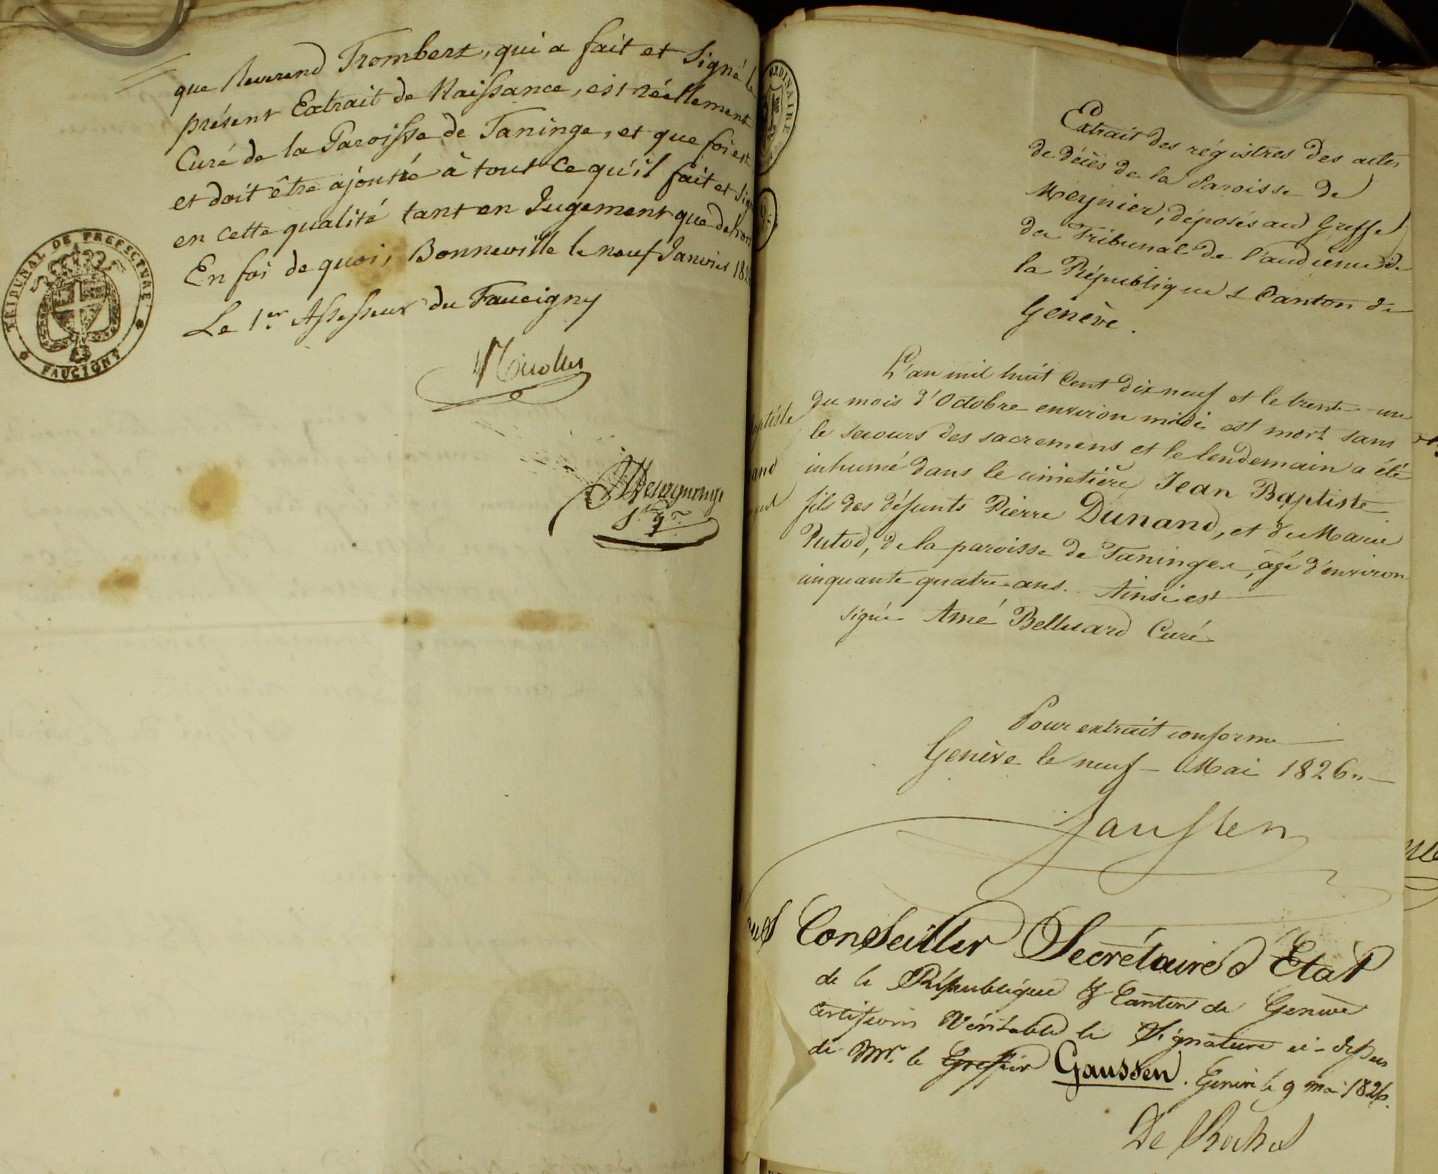 que Reverend Trombert, qui a fait et signé le
présent Extrait de Naissance, est réellement
Curé de la Paroisse de Taninge, et que foi est
et doit être ajoutée à tout ce qu'il fait et sig
en cette qualité tant en Jugement que dehors
En foi de quoi, Bonneville le neuf Janvier 18
Le 1er Assesseur du Faucigny
TRIBUNAL DE PREFECTURE
FAUCIGNY
DINAIRE
Extrait des régistres des actes
de décès de la Paroisse de
Meynier, déposés au Greffe
du Tribunal de l'audience de
la République & Canton de
Genève.
L'an mil huit cent dix neuf et le trente-un
du mois d'Octobre environ midi est mort sans
le secours des sacremens et le lendemain a été
inhumé dans le cimetière Jean Baptiste
fils des défunts Pierre Dunand, et de Marie
Dutod, de la paroisse de Taninge, âgé d'environ
cinquante quatre ans. Ainsi est
signé Amé Belluard Curé
Pour extrait conforme
Genève le neuf Mai 1826.
Gaussen
ous Conseiller Secrétaire d'Etat
de la République & Canton de Genève
certifions Véritable la Signature ci-dessus
de Mr. le Greffier Gaussen. Genève le 9 mai 1826.
De Roches